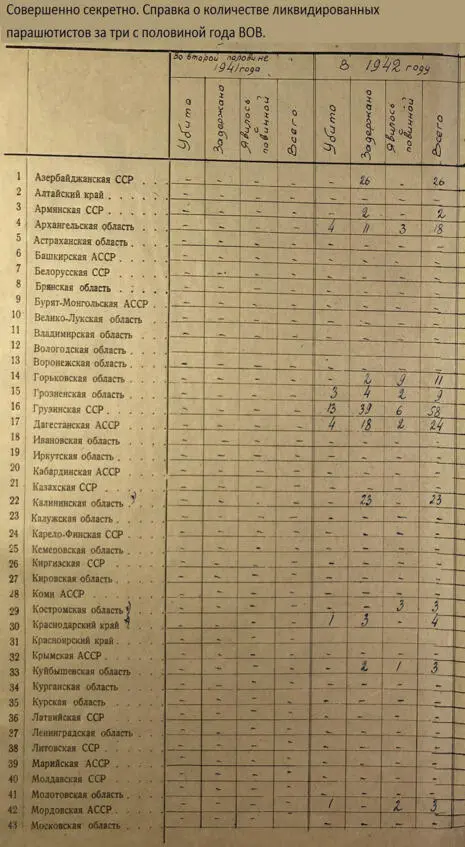 Совершенно секретно. Справка о количестве ликвидированных
парашютистов за три с половиной года ВОВ.
Во второй половине 1941 года В 1942 году
Убито Задержано Явилось с повинной Всего Убито Задержано Явилось с повинной Всего
1 Азербайджанская ССР . . . - - - - - 26 - 26
2 Алтайский край . . . . . - - - - - - - -
3 Армянская ССР . . . . - - - - - 2 - 2
4 Архангельская область . . . - - - - 4 11 3 18
5 Астраханская область . . . - - - - - - - -
6 Башкирская АССР . . . . - - - - - - - -
7 Белорусская ССР . . . . - - - - - - - -
8 Брянская область . . . . - - - - - - - -
9 Бурят-Монгольская АССР . . - - - - - - - -
10 Велико-Лукская область . . . - - - - - - - -
11 Владимирская область . . . - - - - - - - -
12 Вологодская область . . . . - - - - - - - -
13 Воронежская область . . . - - - - - - - -
14 Горьковская область . . . . - - - - - 2 9 11
15 Грозненская область . . . . - - - - 3 4 2 9
16 Грузинская ССР . . . . - - - - 13 39 6 58
17 Дагестанская АССР . . . . - - - - 4 18 2 24
18 Ивановская область . . . . - - - - - - - -
19 Иркутская область . . . . - - - - - - - -
20 Кабардинская АССР . . . . - - - - - - - -
21 Казахская ССР . . . . - - - - - - - -
22 Калининская область . . . - - - - - 23 - 23
23 Калужская область . . . . - - - - - - - -
24 Карело-Финская ССР . . . - - - - - - - -
25 Кемеровская область . . . - - - - - - - -
26 Киргизская ССР . . . . - - - - - - - -
27 Кировская область . . . . - - - - - - - -
28 Коми АССР . . . . . - - - - - - - -
29 Костромская область . . . - - - - - - 3 3
30 Краснодарский край . . . - - - - 1 3 - 4
31 Красноярский край . . . . - - - - - - - -
32 Крымская АССР . . . . - - - - - - - -
33 Куйбышевская область . . . - - - - - 2 1 3
34 Курганская область . . . . - - - - - - - -
35 Курская область . . . . - - - - - - - -
36 Латвийская ССР . . . . - - - - - - - -
37 Ленинградская область . . . - - - - - - - -
38 Литовская ССР . . . . - - - - - - - -
39 Марийская АССР . . . . - - - - - - - -
40 Молдавская ССР . . . . - - - - - - - -
41 Молотовская область . . . - - - - - - - -
42 Мордовская АССР . . . . - - - - 1 - 2 3
43 Московская область . . . . - - - - - - - -